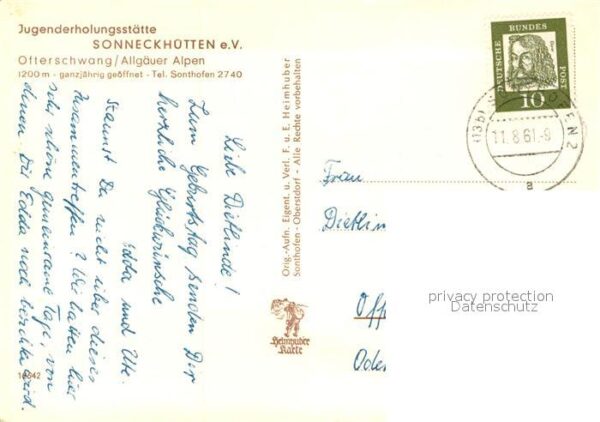 Jugenderholungsstätte
SONNECKHÜTTEN e.V.
Ofterschwang/Allgäuer Alpen
1200 m - ganzjährig geöffnet - Tel. Sonthofen 2740
Liebe Dietlinde!
Zum Geburtstag senden Dir
herzliche Glückwünsche
Edda und Ute.
Staunst Du nicht über dieses
Zusammentreffen? Wir hatten hier
sehr schöne gemeinsame Tage, von
denen Dir Edda noch berichten wird.
16642
Orig.-Aufn. Eigent. u. Verl. F. u. E. Heimhuber
Sonthofen - Oberstdorf - Alle Rechte vorbehalten
Heimhuber
Karte
DEUTSCHE
BUNDES
POST
10
11.8.61.-9
a
Frau
Dietlin
Off
Oden
privacy protection
Datenschutz